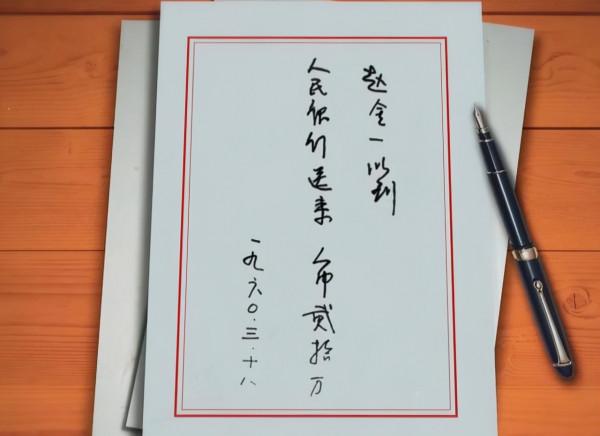 赵全一收到
人民银行送来 人币贰拾万
一九六〇.三.十八